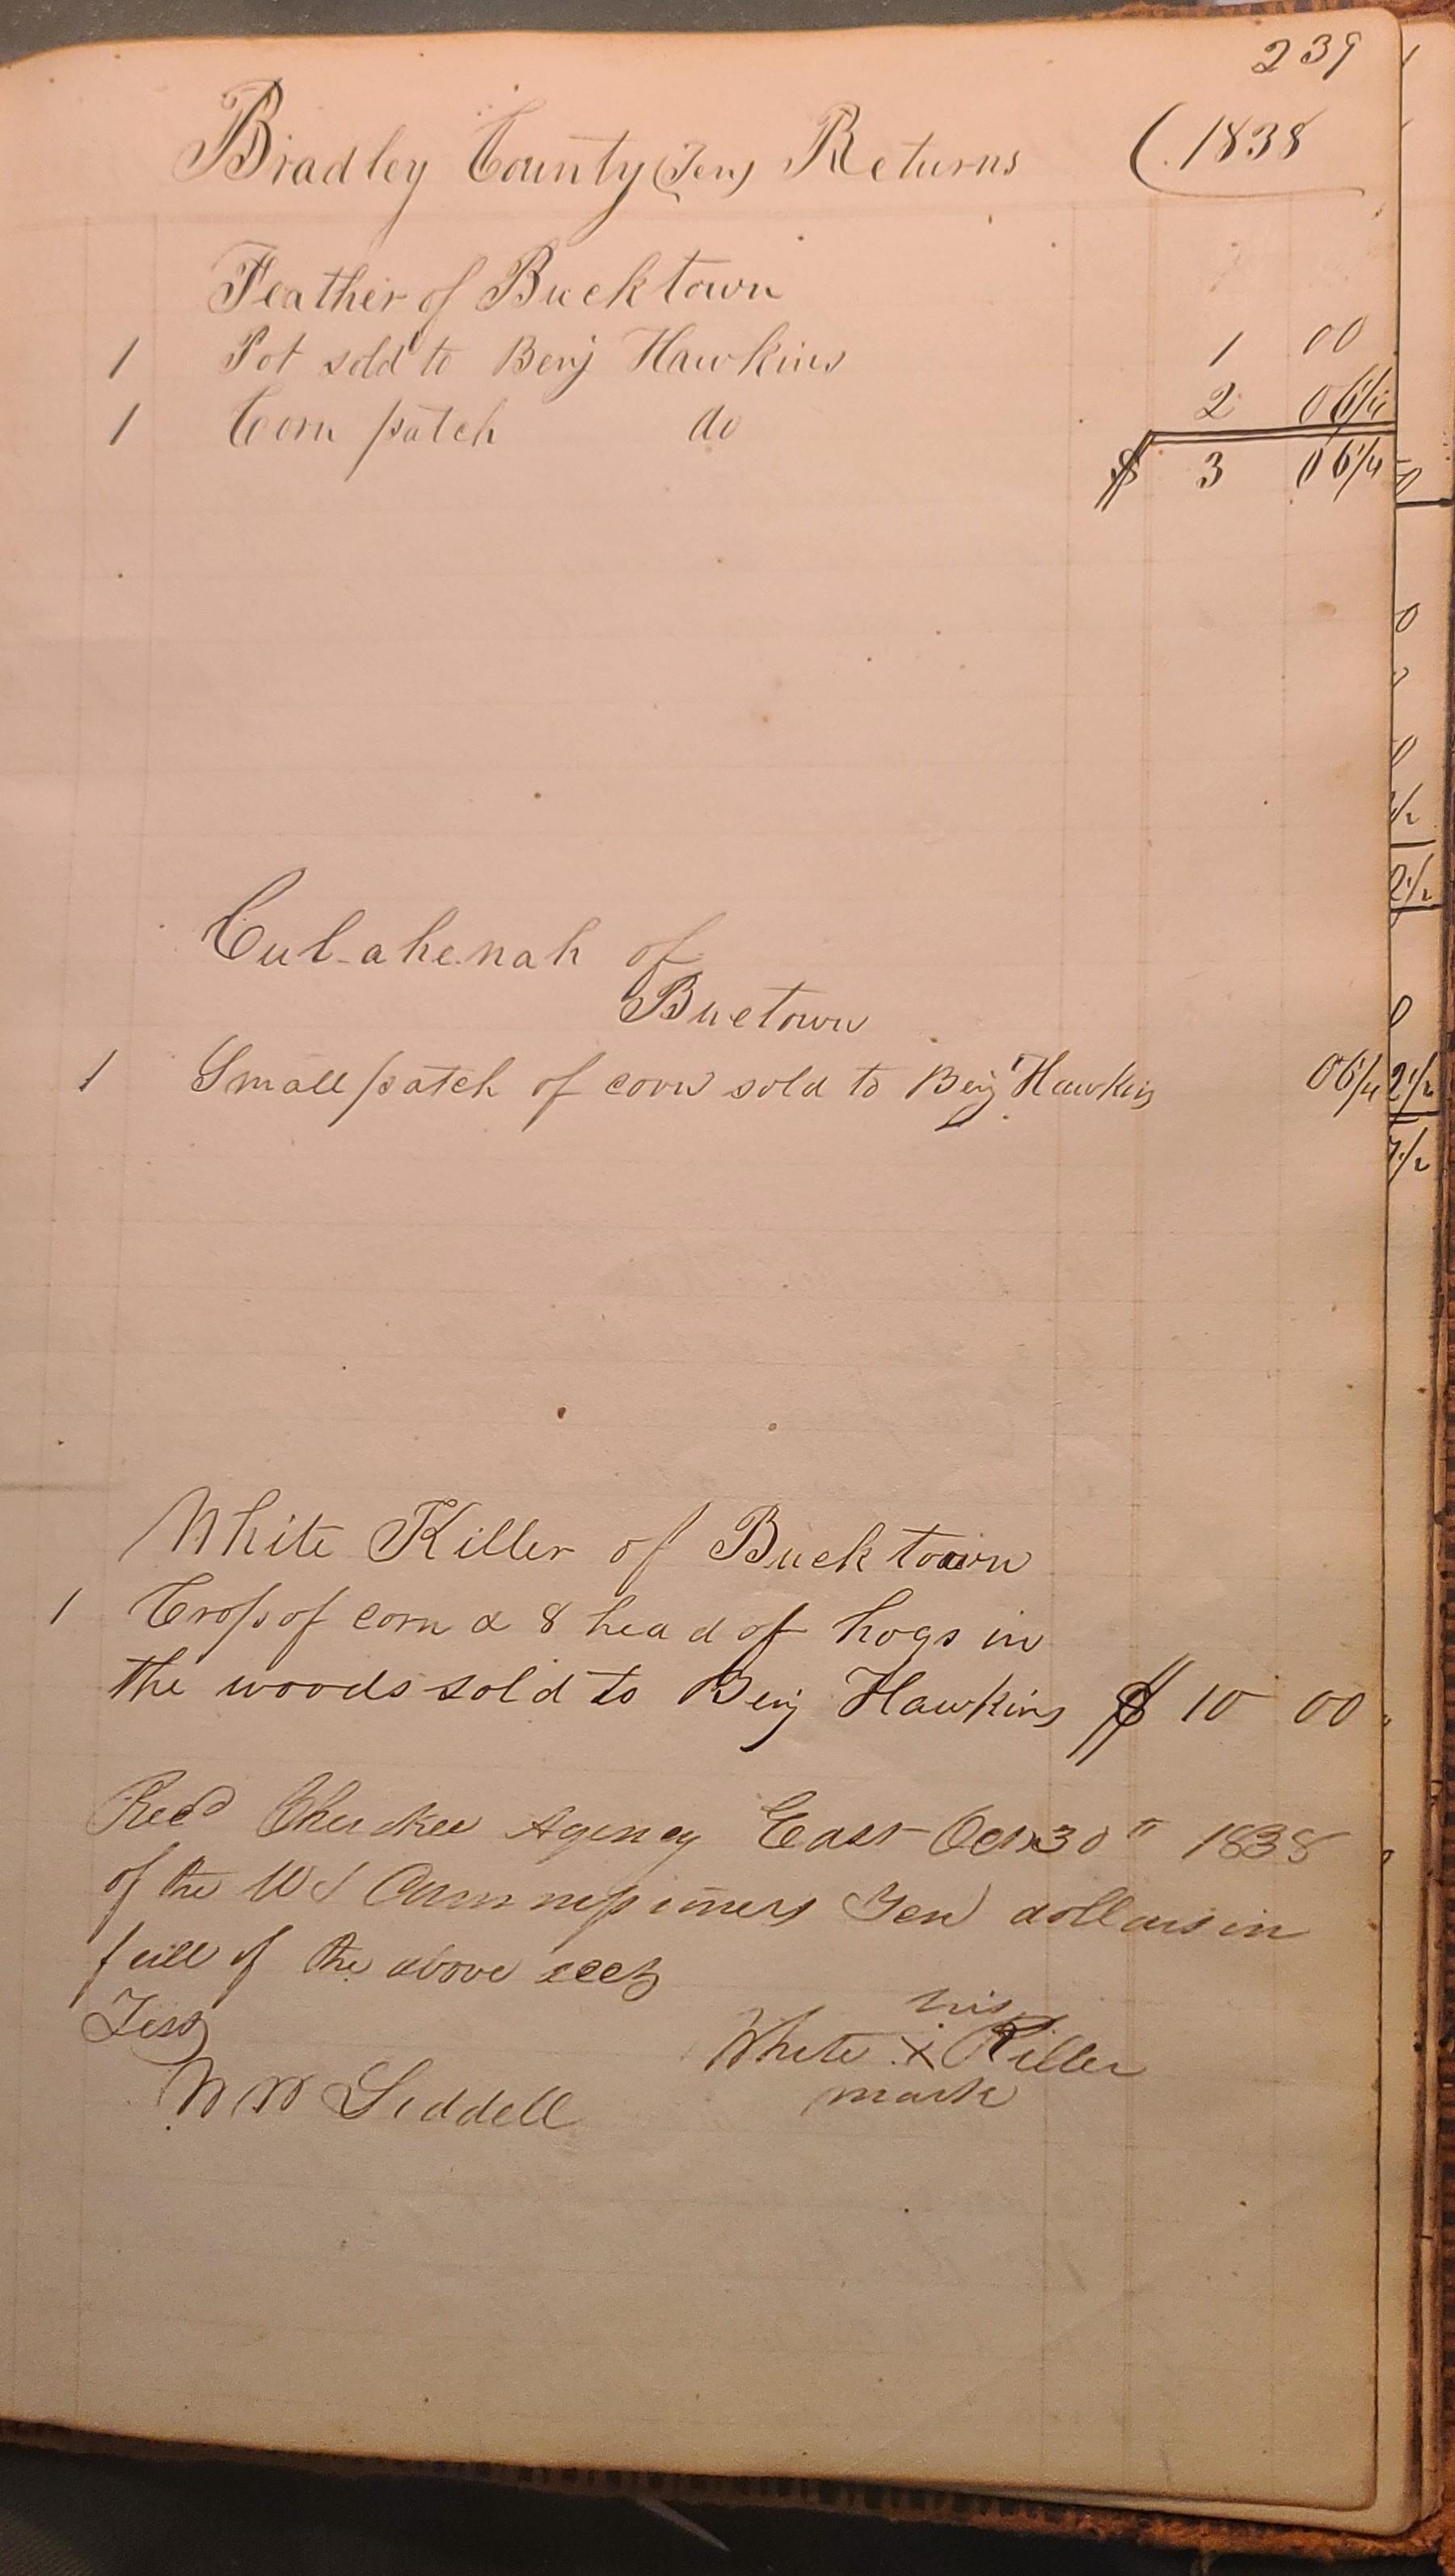 239
Bradley County (Ten) Returns (. 1838
Feather of Bucktown
1 Pot sold to Benj Hawkins 1 00
1 Corn patch do 2 06 1/4
$ 3 06 1/4
Cul-ahenah of
Buctown
1 Small patch of corn sold to Benj Hawkins 06 1/4
White Killer of Bucktown
1 Crop of corn & 8 head of hogs in
the woods sold to Benj Hawkins $ 10 00
Recd Cherokee Agency East Oct 30th 1838
of the US Commissioners Ten dollars in
full of the above acct
Test
his
White X Killer
mark
W W Liddell